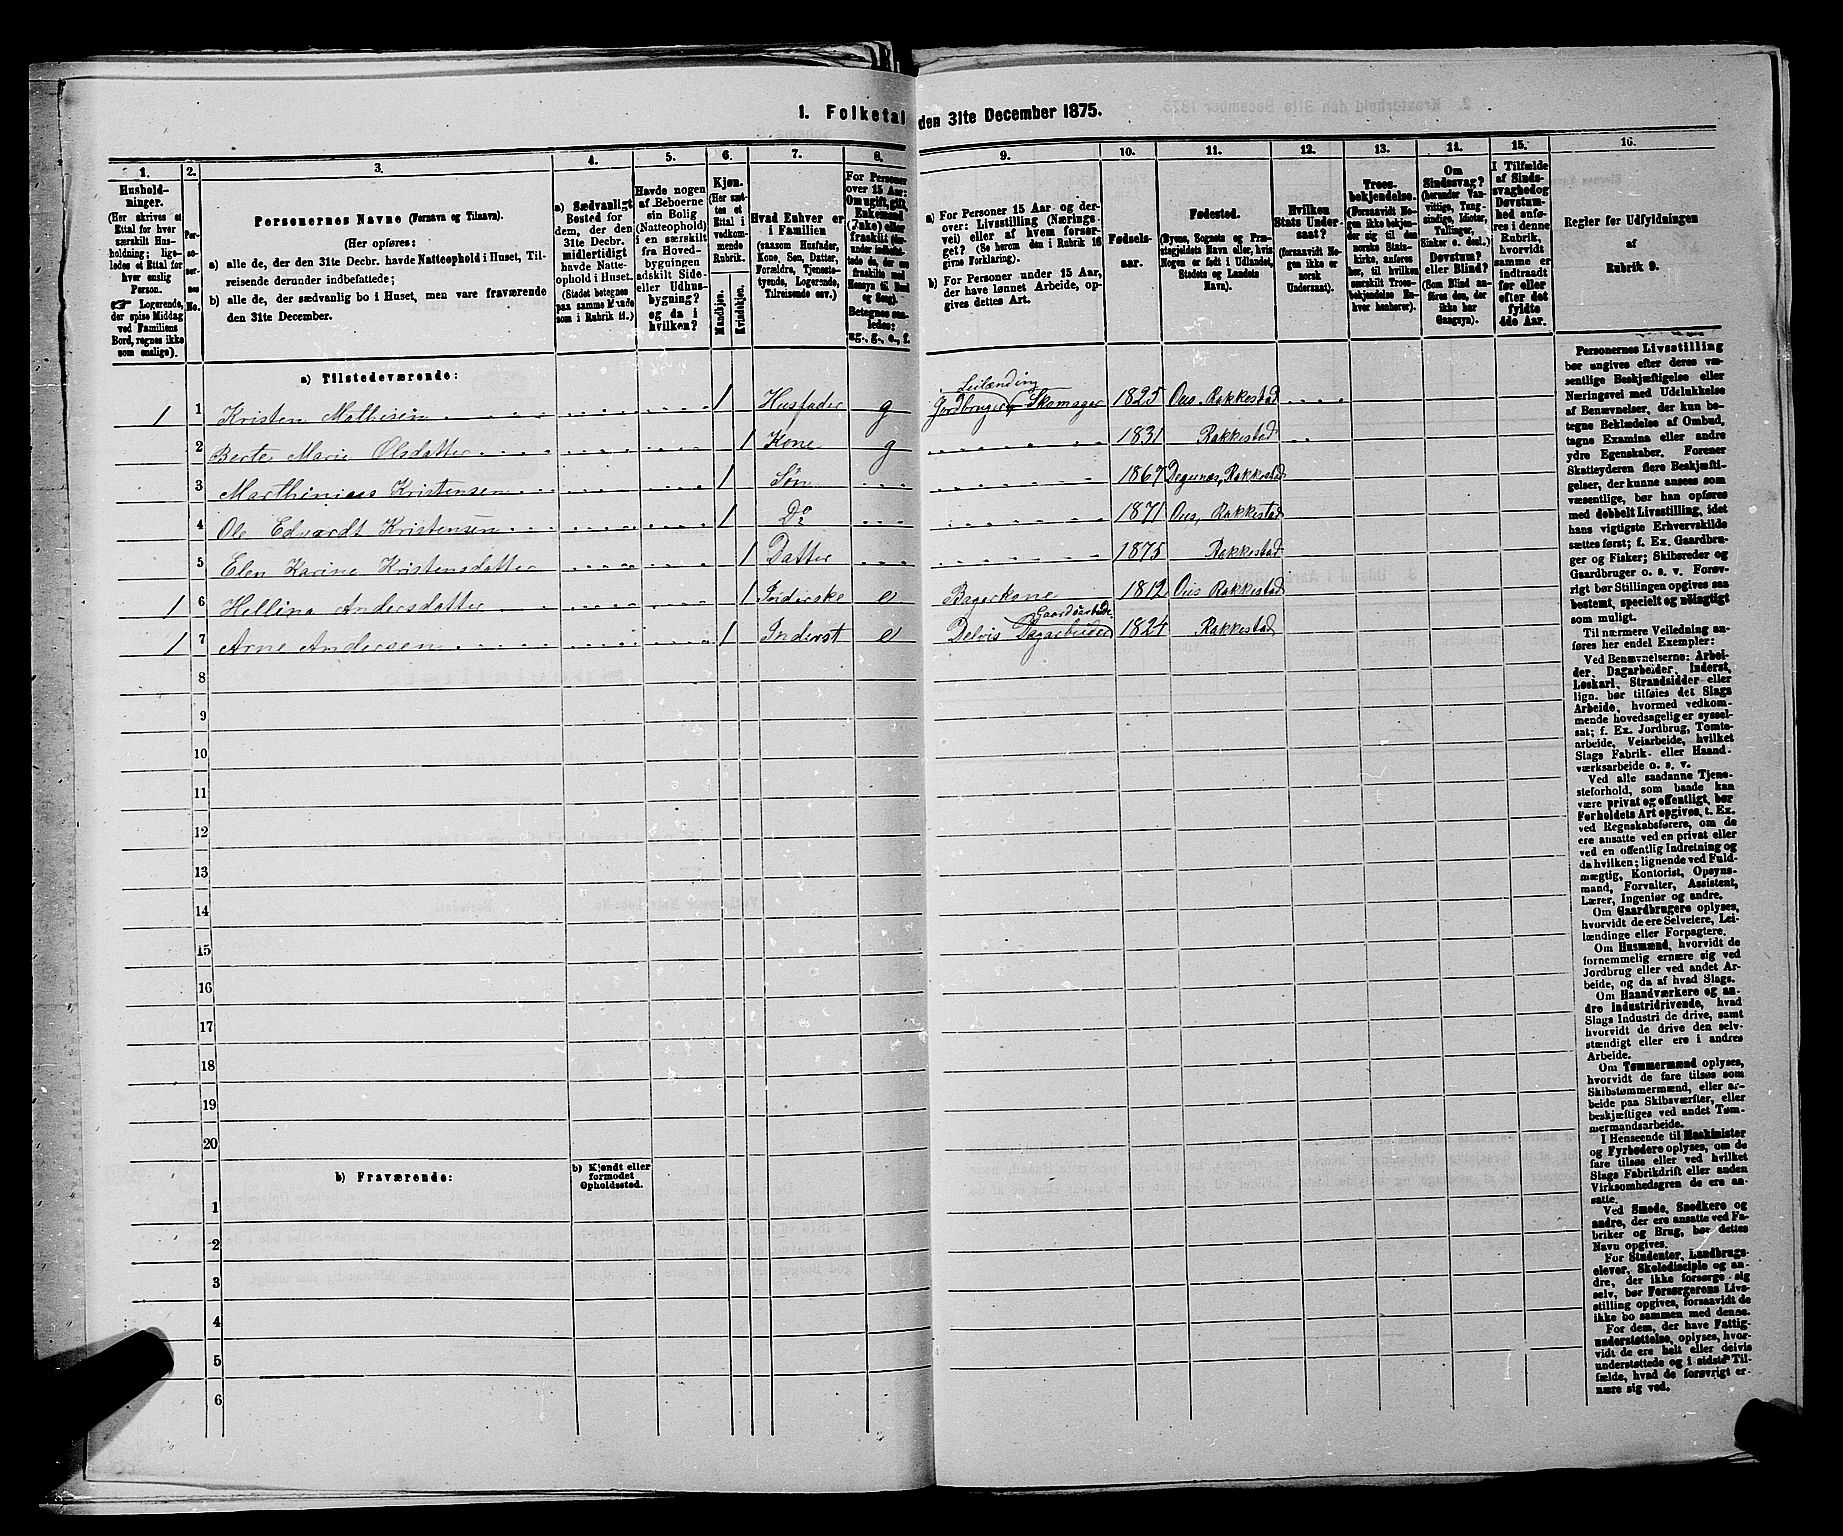 1. Folketal den 31te December 1875.
1.
Hushold-
ninger.
(Her skrives et
Ettal for hver
særskilt Hus-
holdning; lige-
ledes et Ettal for
hver enslig
Person.
Logerende,
der spise Middag
ved Familiens
Bord, regnes ikke
som enslige).
2.
Per-
so-
ner-
nes
No.
3.
Personernes Navne (Fornavn og Tilnavn).
(Her opføres:
a) alle de, der den 31te Decbr. havde Natteophold i Huset, Til-
reisende derunder indbefattede;
b) alle de, der sædvanlig bo i Huset, men vare fraværende
den 31te December.
4.
a) Sædvanligt
Bosted for
dem, der den
31te Decbr.
midlertidigt
havde Natte-
ophold i Huset.
(Stedet betegnes
paa samme Maade
som i Rubrik 11.)
5.
Havde nogen
af Beboerne
sin Bolig
(Natteophold)
i en særskilt
fra Hoved-
bygningen
adskilt Side-
eller Udhus-
bygning?
og da i
hvilken?
6.
Kjøn.
(Her sæt-
tes et
Ettal i
vedkom-
mende
Rubrik.
Mandkjøn.
Kvindekjøn.
7.
Hvad Enhver er
i Familien
(saasom Husfader,
Kone, Søn, Datter,
Forældre, Tjeneste-
tyende, Logerende,
Tilreisende osv.)
8.
For Personer
over 15 Aar:
Om ugift, gift,
Enkemand
(Enke) eller
fraskilt
Betegnes saa-
ledes:
ug., g., e., f.
9.
a) For Personer 15 Aar og der-
over: Livsstilling (Nærings-
vei) eller af hvem forsør-
get? (Se herom den i Rubrik 16
givne Forklaring).
b) For Personer under 15 Aar,
der have lønnet Arbeide, op-
gives dettes Art.
10.
Fødsels-
aar.
11.
Fødested.
(Byens, Sognets og Præ-
stegjeldets Navn eller, hvis
Nogen er født i Udlandet,
Stedets og Landets
Navn).
12.
Hvilken
Stats Under-
saat?
(forsaavidt No-
gen ikke er
norsk
Undersaat).
13.
Troes-
bekjendelse.
(Forsaavidt No-
gen ikke bekjen-
der sig til den
norske Stats-
kirke, anføres
her, til hvilken
særskilt Troes-
bekjendelse En-
hver henhører).
14.
Om
Sindssvag?
(herunder Van-
vittige, Tung-
sindige, Idioter,
Tullinger,
Sinker o. desl.)
Døvstum?
eller Blind?
(Som Blind an-
føres den, der
ikke har
Gangsyn).
15.
I Tilfælde
af Sinds-
svaghed og
Døvstum-
hed anfø-
res i denne
Rubrik,
hvorvidt
samme er
indtraadt
før eller
efter det
fyldte
4de Aar.
16.
Regler for Udfyldningen
af
Rubrik 9.
a) Tilstedeværende:
1 1 Kristen Mathisen 1 Husfader g Leilænding Jordbruger Skomager 1825 Ous, Rakkestad
2 Berte Marie Olsdatter 1 Kone g 1831 Rakkestad
3 Marthinius Kristensen 1 Søn 1867 Degernæs, Rakkestad
4 Ole Edvardt Kristensen 1 Do 1871 Ous, Rakkestad
5 Elen Karine Kristensdatter 1 Datter 1875 Rakkestad
1 6 Hellina Andersdatter 1 Inderske e Bagerkone 1812 Ous Rakkestad
1 7 Arne Andersen 1 Inderst e Delvis Dagarbeider Gaardsarbeide 1824 Rakkestad
8
9
10
11
12
13
14
15
16
17
18
19
20
b) Fraværende:
b) Kjendt eller
formodet
Opholdssted.
1
2
3
4
5
6
Personernes Livsstilling
bør angives efter deres væ-
sentlige Beskjæftigelse eller
Næringsvei med Udelukkelse
af Benævnelser, der kun be-
tegne Beklædelse af Ombud,
tagne Examina eller andre
ydre Egenskaber. Forener
Skatteyderen flere Beskjæfti-
gelser, der kunne ansees som
væsentlige, bør han opføres
med dobbelt Livsstilling, idet
hans vigtigste Erhvervskilde
sættes først; f. Ex. Gaardbru-
ger og Fisker; Skibsreder og
Gaardbruger o. s. v. Forøv-
rigt bør Stillingen opgives saa
bestemt, specielt og nøiagtigt
som muligt.
Til nærmere Veiledning an-
føres her endel Exempler:
Ved Benævnelserne: Arbei-
der, Dagarbeider, Inderst,
Løskarl, Strandsidder eller
lign. bør tilføies det Slags
Arbeide, hvormed vedkom-
mende hovedsagelig er syssel-
sat; f. Ex. Jordbrug, Tømte-
arbeide, Veiarbeide, hvilket
Slags Fabrik- eller Haand-
værksarbeide o. s. v.
Ved alle saadanne Tjene-
steforhold, som baade kan
være privat og offentligt, bør
Forholdets Art opgives, t. Ex.
ved Regnskabsførere, om de
ere ansatte ved en privat eller
ved en offentlig Indretning og
da hvilken; lignende ved Fuld-
mægtig, Kontorist, Opsyns-
mand, Forvalter, Assistent,
Lærer, Ingeniør og andre.
Om Gaardbrugere oplyses,
hvorvidt de ere Selveiere, Lei-
lændinge eller Forpagtere.
Om Husmænd, hvorvidt de
fornemmelig ernære sig ved
Jordbrug eller ved andet Ar-
beide, og da af hvad Slags.
Om Haandværkere og an-
dre Industridrivende, hvad
Slags Industri de drive, samt
hvorvidt de drive den selv-
stændigt eller ere i andres
Arbeide.
Om Tømmermænd oplyses,
hvorvidt de fare tilsøs som
Skibstømmermænd, eller ar-
beide paa Skibsværfter, eller
beskjæftiges ved andet Tøm-
mermandsarbeide.
I Henseende til Maskinister
og Fyrbødere oplyses, om de
fare tilsøs eller ved hvilket
Slags Fabrikdrift eller anden
Virksomhedsgren de ere an-
satte.
Ved Smede, Snedkere og
andre, der ere ansatte ved Fa-
briker og Brug, bør dettes
Navn opgives.
For Studenter, Landbrugs-
elever, Skoledisciple og an-
dre, der ikke forsørge sig
selv, bør Forsørgerens Livs-
stilling opgives, forsaavidt de
ikke bo sammen med denne.
For dem, der have Fattig-
understøttelse, oplyses, hvor-
vidt de ere helt eller delvis
understøttede og i sidste Til-
fælde, hvad de forøvrigt er-
nære sig ved.